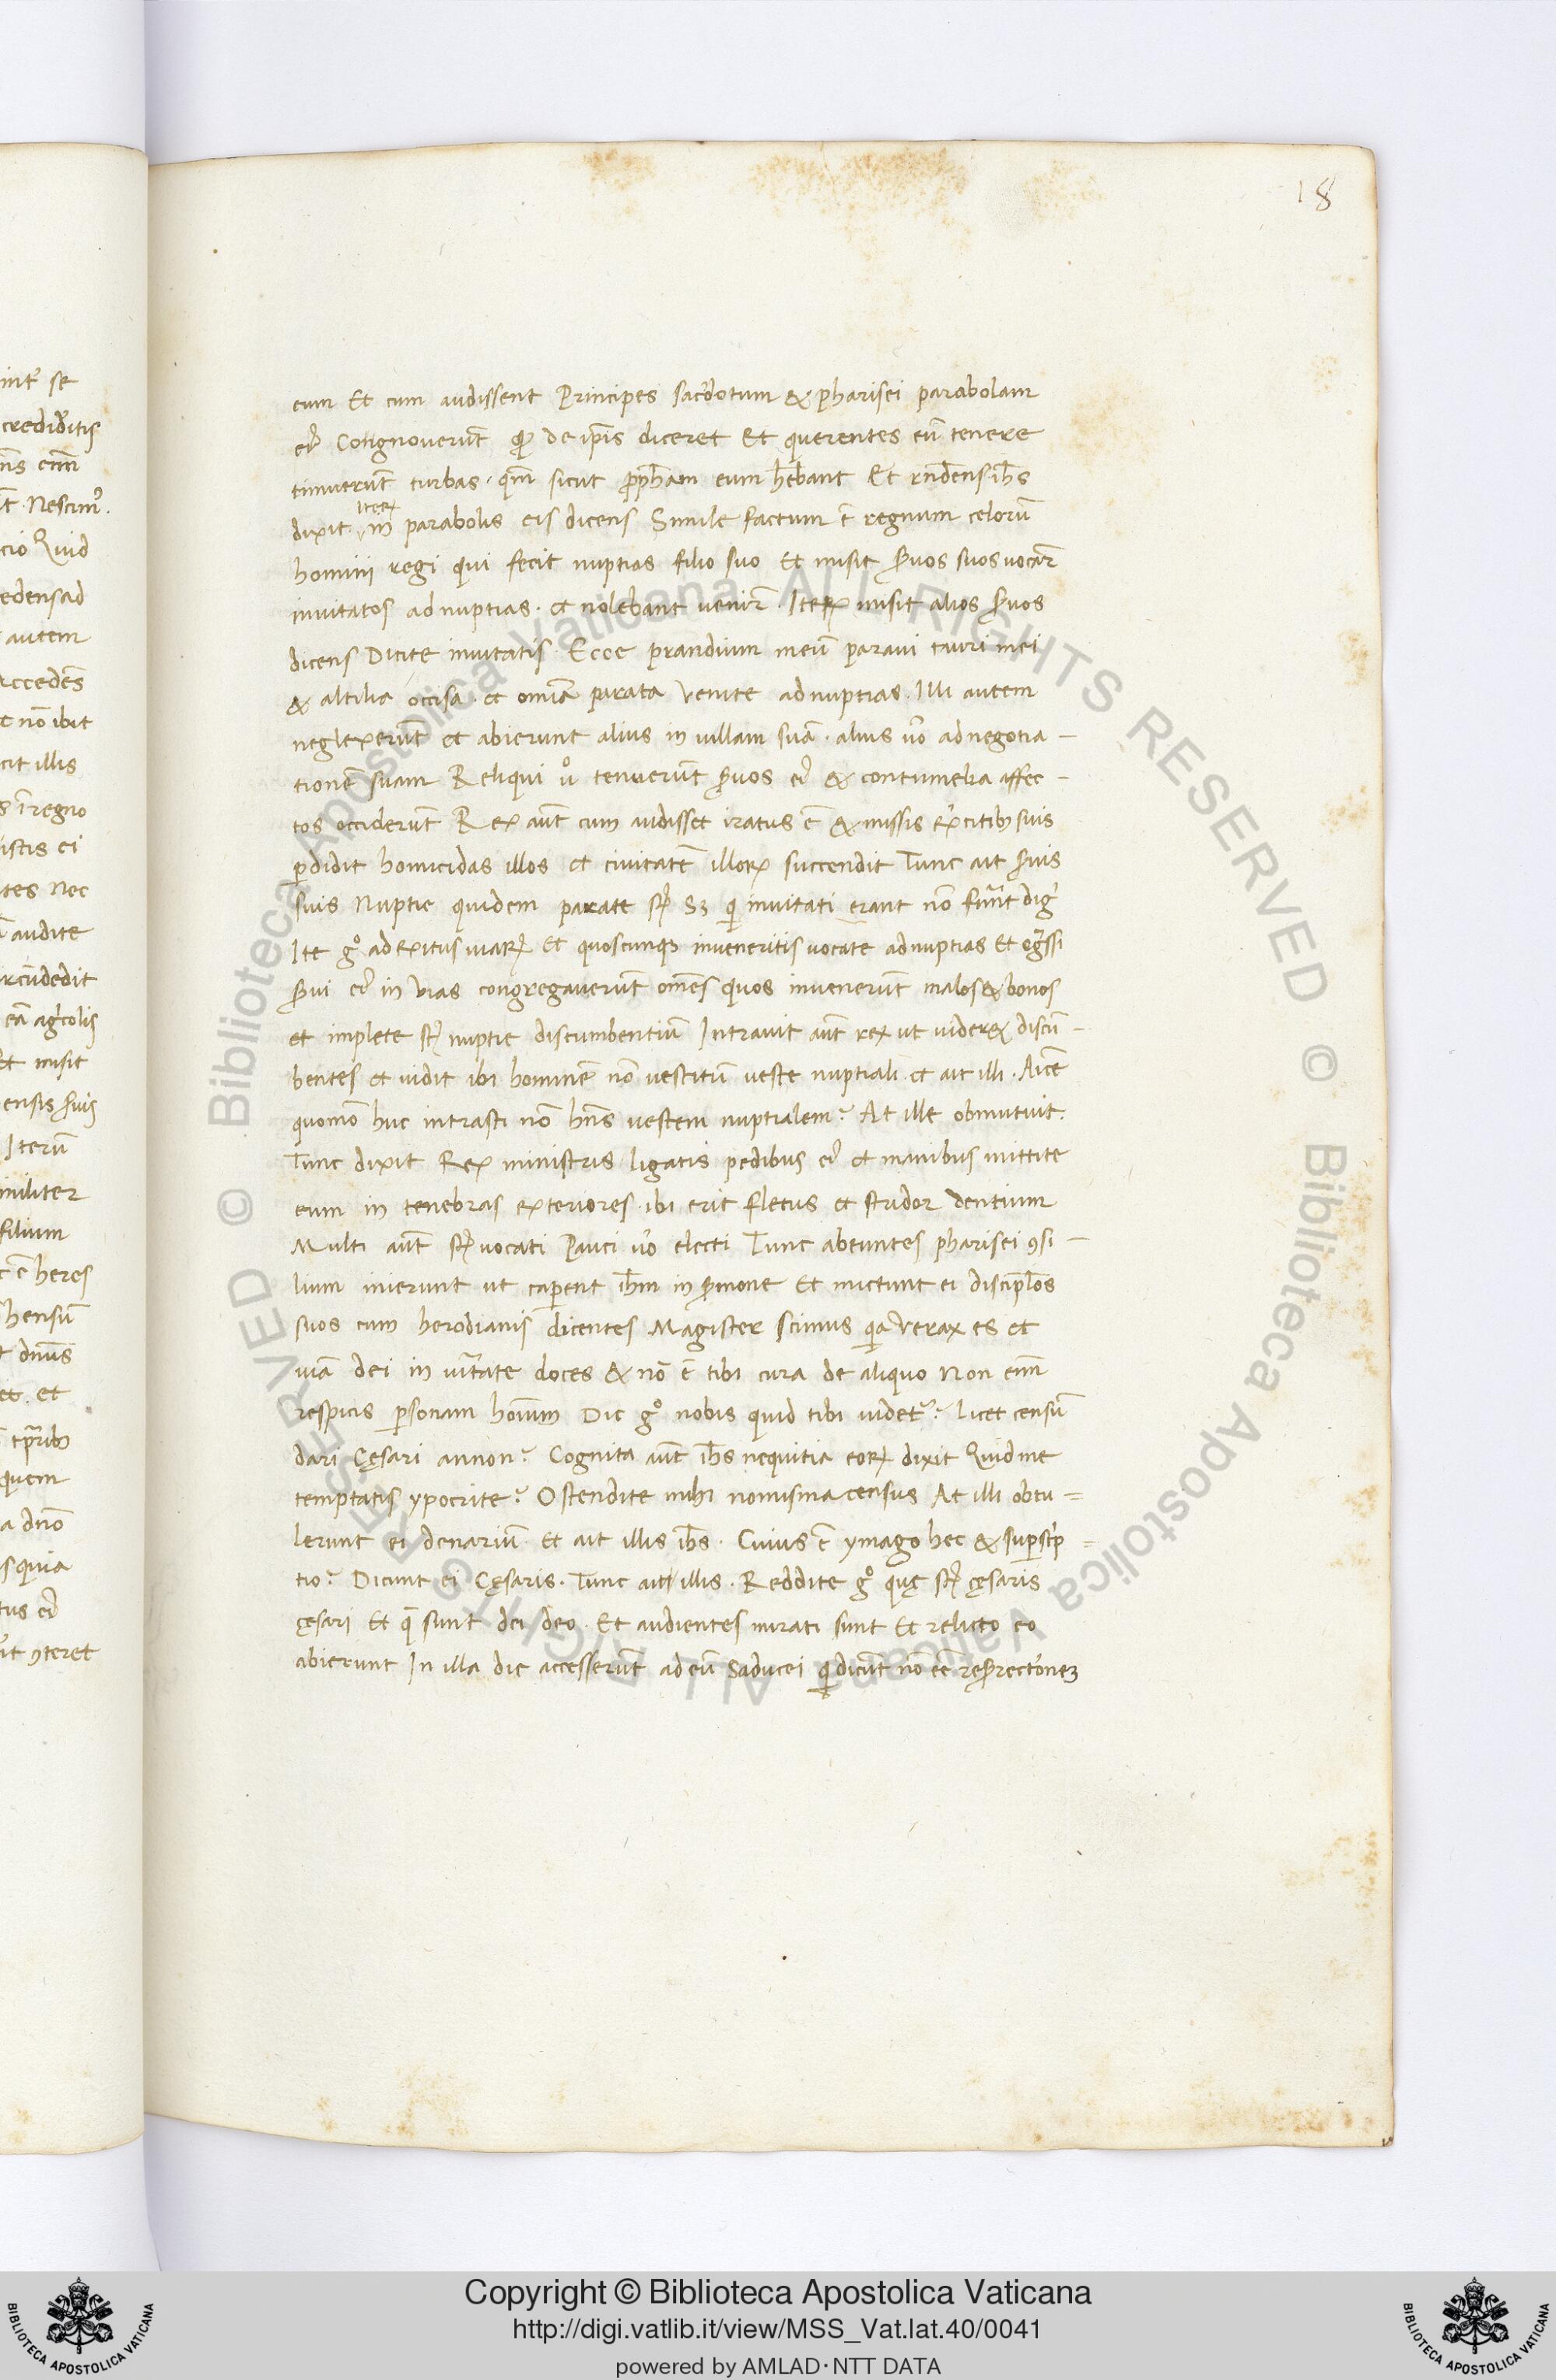 18
eum Et cum audissent Principes sac̾dotum & pharisei parabolam
ei᷒ Congnouerūt qꝫ de ip̄is diceret Et querentes eū tenere
timuerūt turbas · qm̄ sicut ꝓph̄am eum hēbant Et rn̄dens ih̄s
dixit iterꝝ in parabolis eis dicens Simile factum ē regnum celorū
homini regi qui fecit nuptias filio suo Et misit s̾uos suos uocar̄
inuitatos ad nuptias · et nolebant uenir̄ · Iterꝝ misit alios s̾uos
dicens Dicite inuitatis · Ecce prandium meū paraui tauri mei
& altilia occisa · et omīa parata Venite ad nuptias · Illi autem
neglexerūt et abierunt alius in uillam suā · alius ūo ad negotia –
tionē suam Reliqui uͦ tenuerūt s̾uos ei᷒ & contumelia affec –
tos occiderūt Rex aūt cum audisset iratus ē & missis ex̾citibꝫ suis
ꝑdidit homicidas illos et ciuitatē illorꝝ succendit Tunc ait s̾uis
suis Nuptie quidem parate st̄ Sꝫ qi inuitati erant nō fuer̄t dig̾
Ite gͦ ad exitus uiarꝝ Et quoscunqꝫ inueneritis uocate ad nuptias Et egr̄ssi
s̾ui ei᷒ in uias congregauerūt om̄es quos inuenerūt malos & bonos
et implete st̄ nuptie discumbentiū Intrauit aūt rex ut uideret discū –
bentes et uidit ibi hominē nō uestitū ueste nuptiali · et ait illi · Aice
quomō huc intrasti nō hn̄s uestem nuptialem? At ille obmutuit ·
Tunc dixit Rex ministris ligatis pedibus ei᷒ et manibus mittite
eum in tenebras exteriores · ibi erit fletus et stridor dentium
Multi aūt st̄ uocati Pauci ūo electi Tunc abeuntes pharisei ꝯsi –
lium inierunt ut caꝑent ih̄m in s̾mone Et mictunt ei discipl̄os
suos cum herodianis dicentes Magister scimus qia uerax es et
uiā dei in uītate doces & nō ē tibi cura de aliquo Non enī
respicis ꝑsonam hoīum Dic gͦ nobis quid tibi uidet᷒? Licet censū
dari Cęsari annon? Cognita aūt ih̄s nequitia eorꝝ dixit Quid me
temptatis ypocrite? Ostendite mihi nomisma census At illi obtu =
lerunt ei denariū Et ait illis ih̄s · Cuius ē ymago hec & suꝑsc̾p =
tio? Dicunt ei Cęsaris · Tunc ait illis · Reddite gͦ quę st̄ cęsaris
cęsari Et q̄ sunt dei deo · Et audientes mirati sunt Et relicto eo
abierunt In illa die accesserūt ad eū Saducei qi dicūt nō eē res̾rectioneꝫ
int᷒ se
credid̾itis
Nescim᷒ ·
cio Quid
edens ad
autem
Accedēs
nō ibit
cit illis
ī regno
istis ei
tes Nec
audite
ircūdedit
eā ag̾colis
Et misit
ensis s̾uis
Iterū
militer
filium
ē heres
hensū
dn̄us
et
quem
a dn̄o
s quia
tus ei᷒
ꝯteret
© Biblioteca Apostolica Vaticana ALL RIGHTS RESERVED © Biblioteca Apostolica Vaticana ALL RIGHTS RESERVED
Copyright © Biblioteca Apostolica Vaticana
http://digi.vatlib.it/view/MSS_Vat.lat.40/0041
powered by AMLAD·NTT DATA
BIBLIOTECA APOSTOLICA VATICANA
BIBLIOTECA APOSTOLICA VATICANA